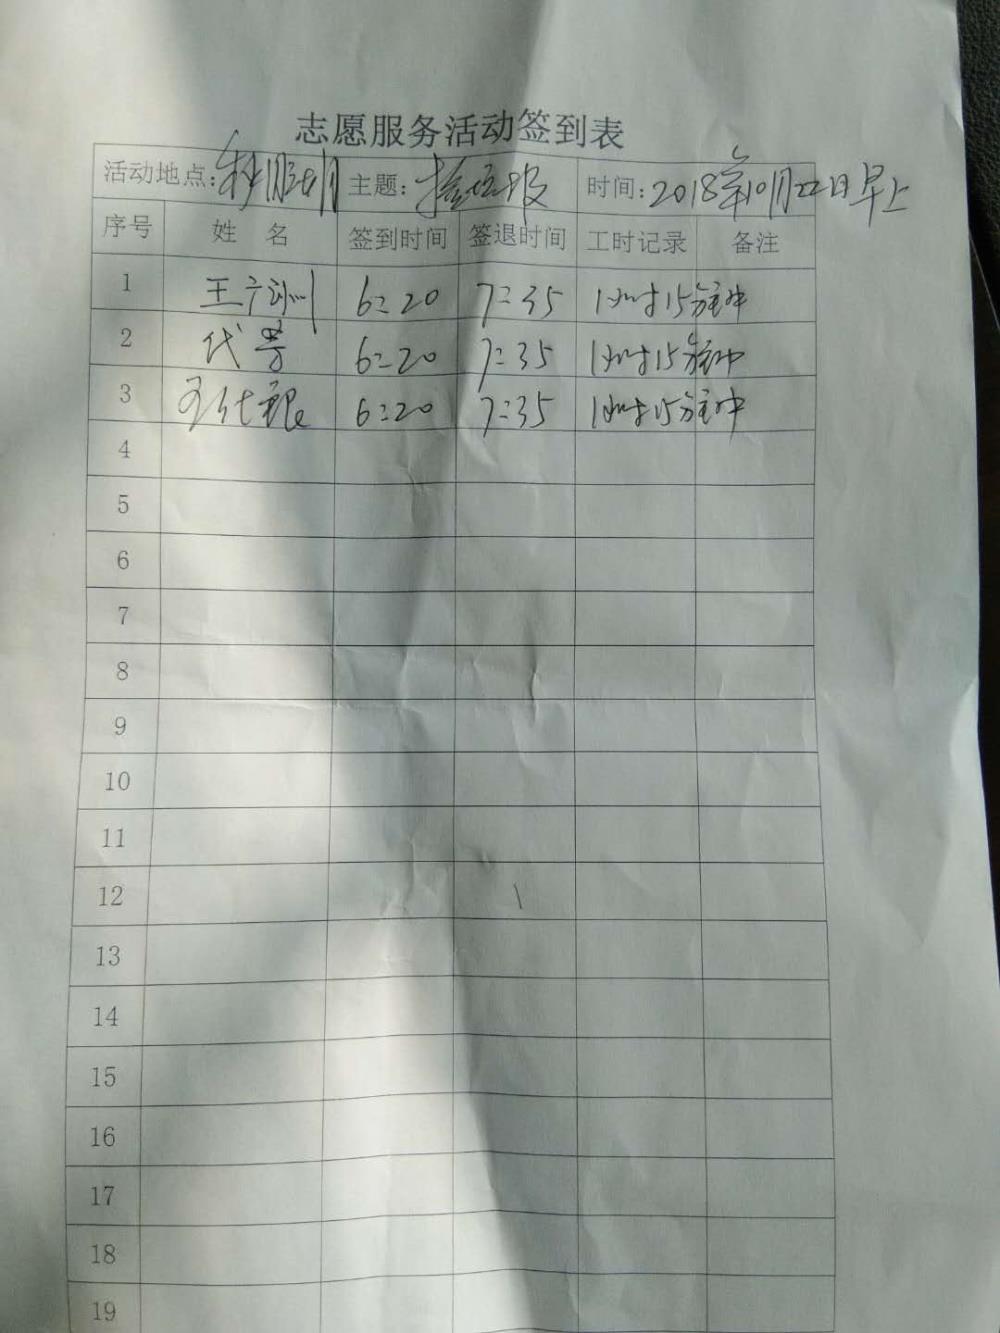 志愿服务活动签到表
活动地点: 主题: 时间:2018年10月22日早上
序号 姓 名 签到时间 签退时间 工时记录 备注
1 王广训 6:20 7:35 1小时15分钟
2 代芳 6:20 7:35 1小时15分钟
3 6:20 7:35 1小时15分钟
4
5
6
7
8
9
10
11
12
13
14
15
16
17
18
19